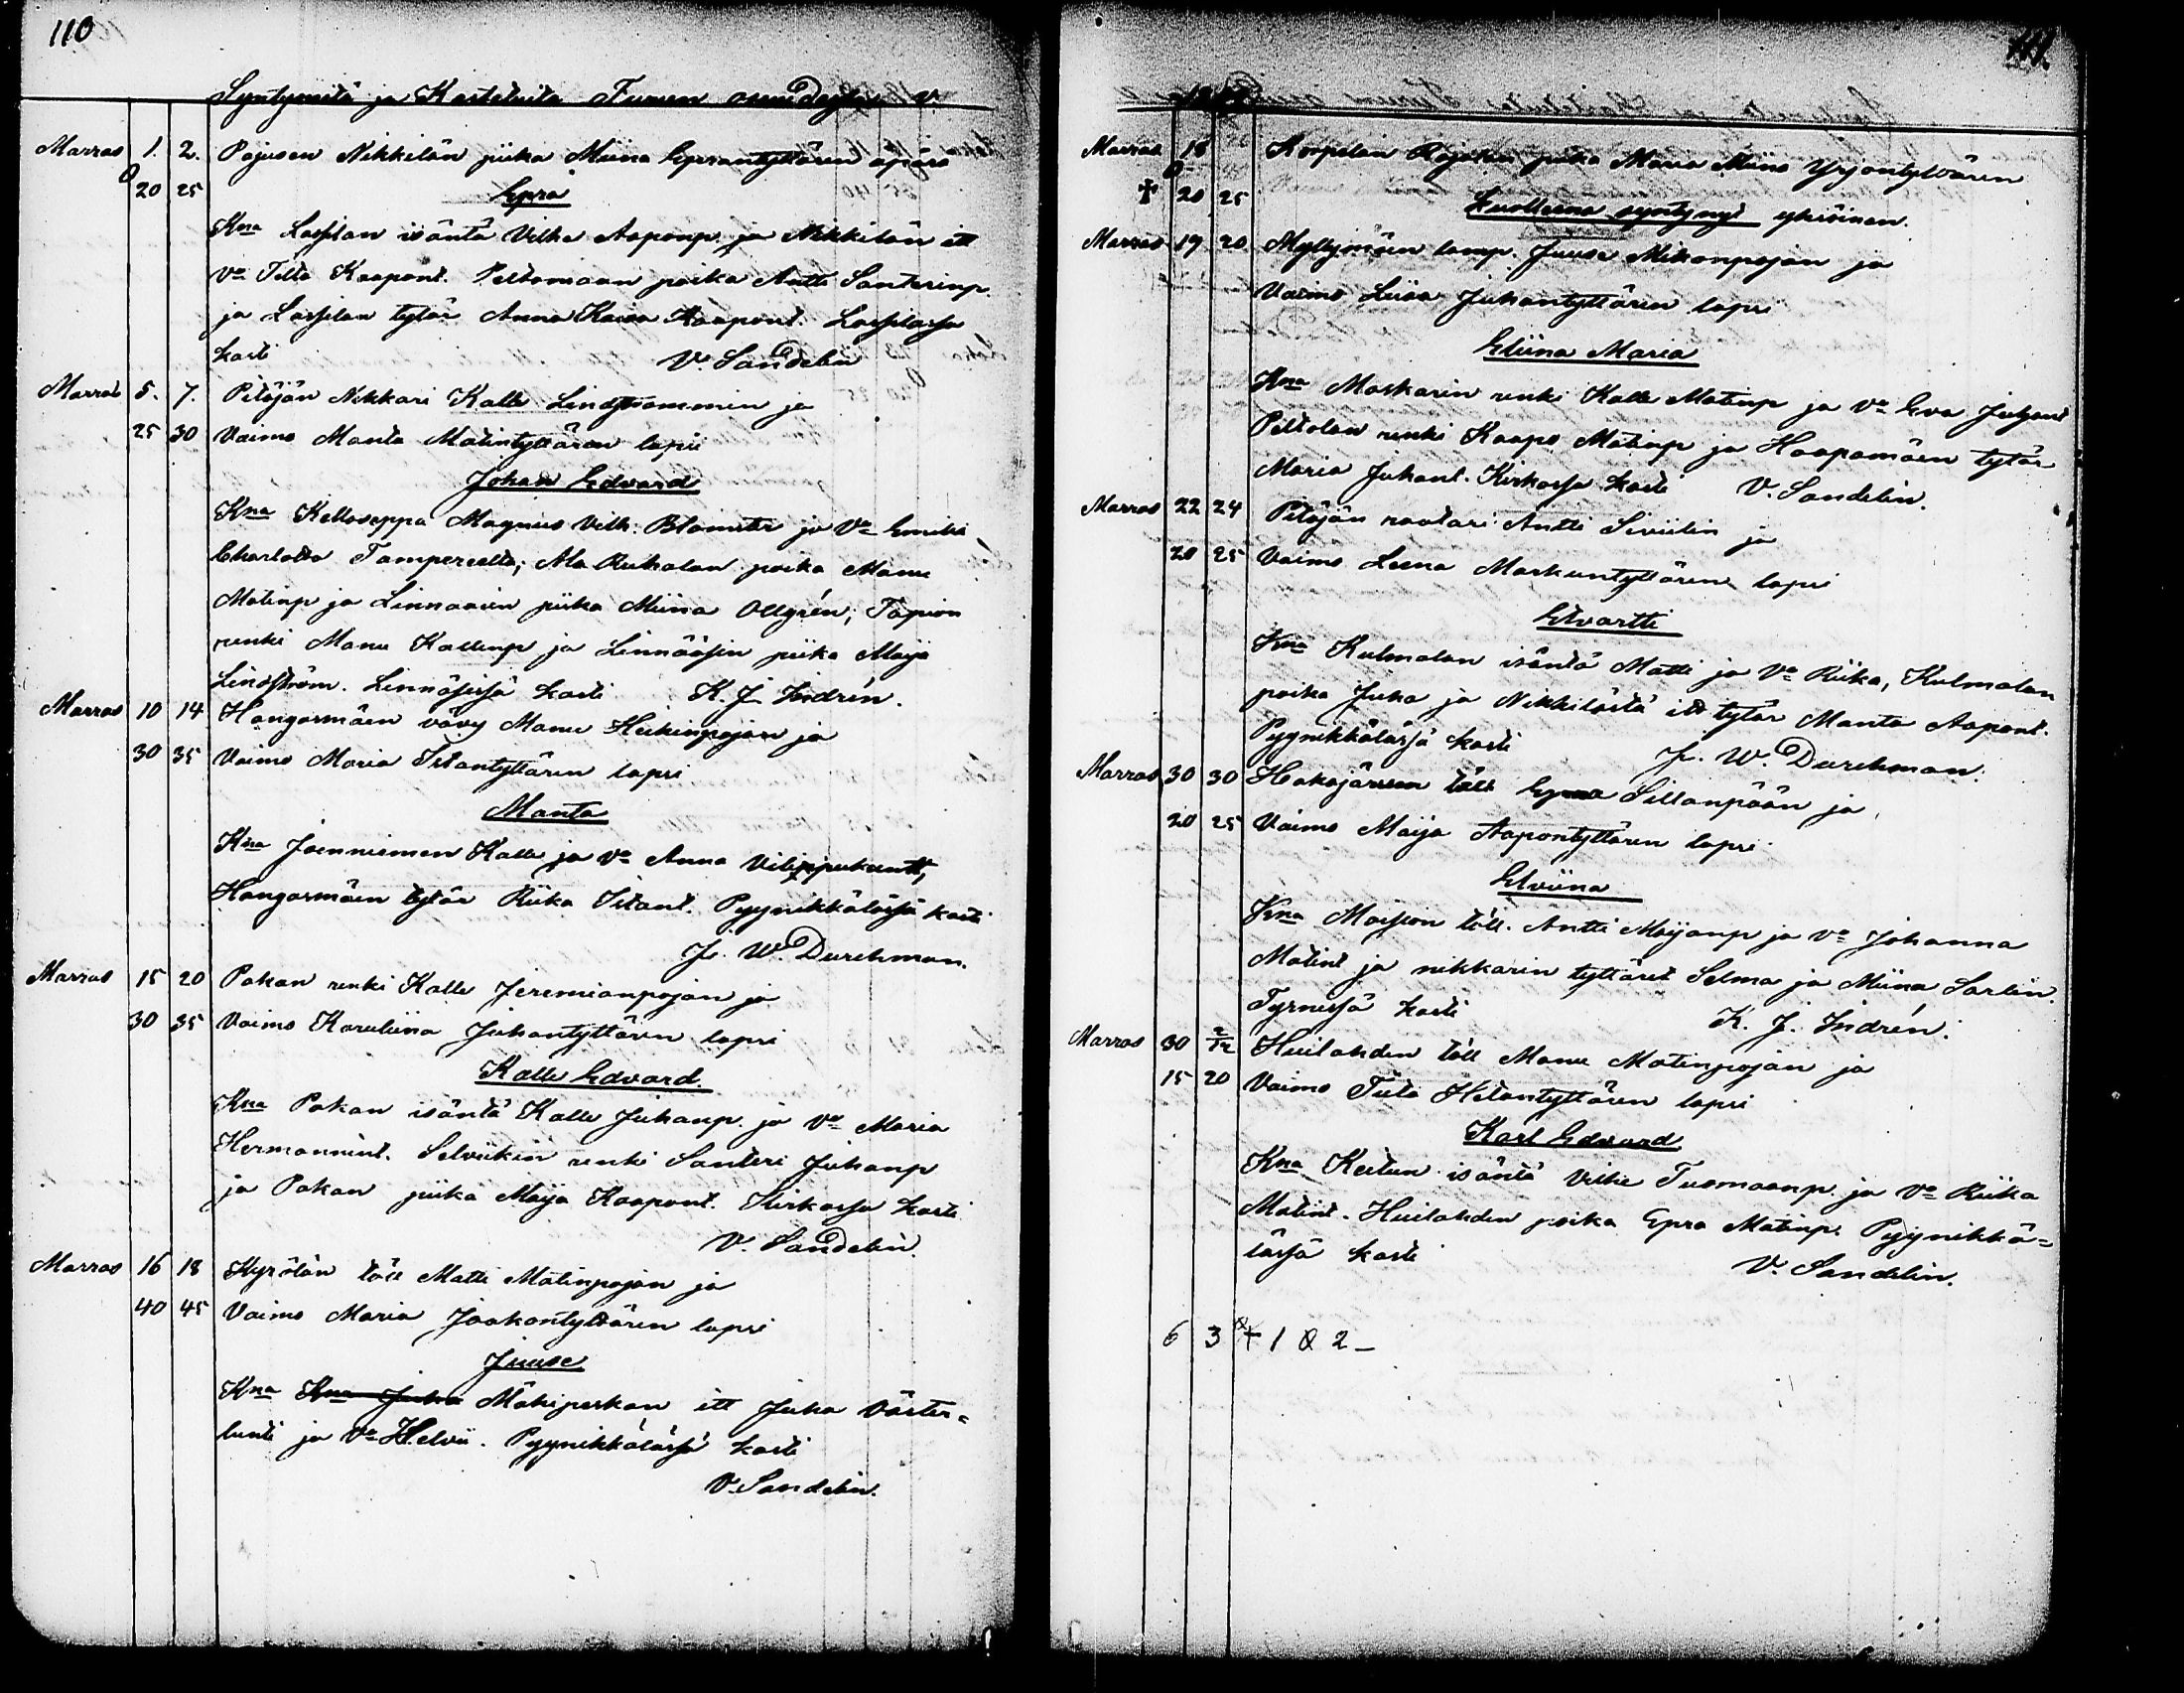 110
Syntyneitä ja Kastetuita v.
Marras 1. 2. Pajusen Nikkilän piika Miina Eprantyttären äpärä
20 25 Epra
Kna Lassilan isäntä Vilhe Aaponp. ja Nikkilän itt
Va Tilta Kaapont. Peltomaan poika Antti Santerinp.
ja Lassilan tytär Anna Kaisa Kaapont. Lassilassa
kasti V. Sandelin
Marras 5. 7. Pitäjän Nikkari Kalle Lindströmmin ja
25 30 Vaimo Manta Matintyttären lapsi
Johan Edvard
Kna Kelloseppa Magnus Vilh. Blomster ja Va Emilia
Charlotta Tampereelta; Ala Rukalan poika Manu
Matinp ja piika Miina Ollgrén; Tapion
renki Manu Kallenp ja piika Maija
Lindström. kasti K. J. Indrén.
Marras 10 14 Hangasmäen vävy Manu Heikinpojan ja
30 35 Vaimo Maria Iitantyttären lapsi
Manta
Kna Joenniemen Kalle ja Va Anna
Hangasmäen tytär Riika Iitant. Pyynikkälässä kasti
J. W. Durchman.
Marras 15 20 Pakan renki Kalle Jeremianpojan ja
30 35 Vaimo Karuliina Juhantyttären lapsi
Kalle Edvard.
Kna Pakan isäntä Kalle Juhanp. ja Va Maria
Hermannint. Selvikin renki Santeri Juhanp
ja Pakan piika Maija Kaapont. Kirkossa kasti
V. Sandelin.
Marras 16 18 Kyrölän töll Matti Matinpojan ja
40 45 Vaimo Maria Jaakontyttären lapsi
Juuse
Kna Kna Juha Mäkiperkan itt Juha Väster=
lunti ja Va Helvii. Pyynikkälässä kasti
V. Sandelin.
111.
Marras 18 Korpelan piika Maria Miina Yrjöntyttären
† 20 25 Kuolleena syntynyt yksöinen.
Marras 19 20 Myllymäen lamp. Juuse Mikonpojan ja
Vaimo Liisa Juhantyttären lapsi
Eliina Maria
Kna Markarin renki Kalle Matinp ja Va Eva Juhant
Peltolan renki Kaapo Matinp ja Haapamäen tytär
Maria Juhant. Kirkossa kasti V. Sandelin.
Marras 22 24 Pitäjän raatari Antti Siviilin ja
20 25 Vaimo Leena Markuntyttären lapsi
Elvartti
Kna Kulmalan isäntä Matti ja Va Riika, Kulmalan
poika Juha ja Nikkilästä itt tytär Manta Aapont.
Pyynikkälässä kasti J. W. Durchman.
Marras 30 30 Hakajärven töll Epra Sillanpään ja
20 25 Vaimo Maija Aapontyttären lapsi
Elviina
Kna Maision töll. Antti Maijanp ja Va Johanna
Matint ja nikkarin tyttäret Selma ja Miina Sarlin.
Tyrnissä kasti K. J. Indrén.
Marras 30 2/12 Huilahden töll Manu Matinpojan ja
15 20 Vaimo Tiita lapsi
Karl Edvard
Kna Keitun isäntä Vilhe Tuomaanp. ja Va Riika
Matint. Huilahden poika Epra Matinp. Pyynikkä=
lässä kasti V. Sandelin.
6 3 † 1 2 -